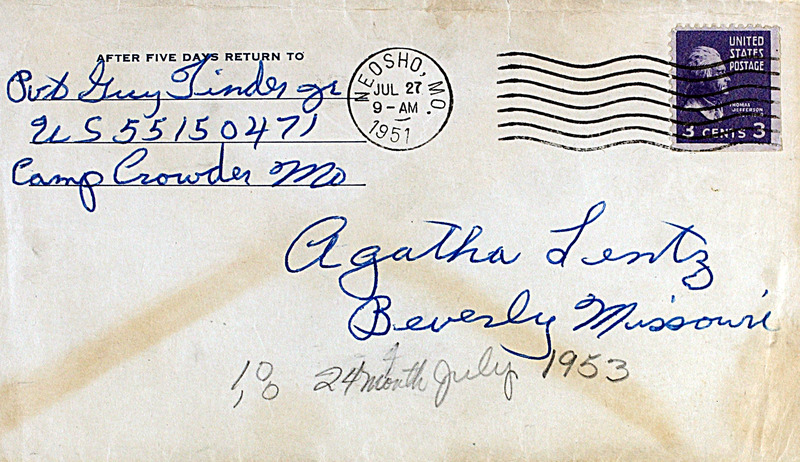 AFTER FIVE DAYS RETURN TO
Pvt Guy Tinder Jr
US 55150471
Camp Crowder Mo
NEOSHO, MO.
JUL 27
9-AM
1951
UNITED
STATES
POSTAGE
THOMAS
JEFFERSON
3 CENTS 3
Agatha Lentz
Beverly Missouri
24 month July 1953